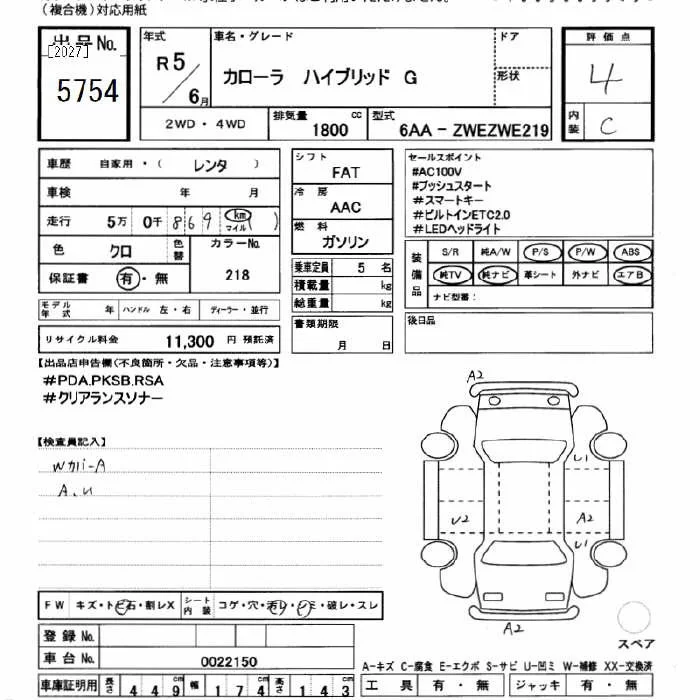 (複合機)対応用紙
出品No.
[2027]
5754
年式
R5/6月
車名・グレード
カローラ ハイブリッド G
ドア
形状
評価点
4
内装
C
2WD・4WD
排気量
1800 cc
型式
6AA-ZWEZWE219
車歴 自家用・( レンタ )
車検 年 月
走行 5万 0千 869 km マイル ( )
色 クロ 色替 カラーNo.
保証書 有・無 218
モデル年式 年 ハンドル 左・右 ディーラー・並行
リサイクル料金 11,300 円 預託済
シフト
FAT
冷房
AAC
燃料
ガソリン
乗車定員 5 名
積載量 kg
総重量 kg
書類期限
月 日
セールスポイント
#AC100V
#プッシュスタート
#スマートキー
#ビルトインETC2.0
#LEDヘッドライト
装備品
S/R 純A/W P/S P/W ABS
純TV 純ナビ 革シート 外ナビ エアB
ナビ型番:
後日品
【出品店申告欄(不良箇所・欠品・注意事項等)】
#PDA.PKSB.RSA
#クリアランスソナー
【検査員記入】
Wカリ-A
A、U
A2
U1
U2
A2
U1
A2
スペア
FW キズ・トビ石・割レX
シート内装 コゲ・穴・汚レ・シミ・破レ・スレ
登録No.
車台No. 0022150
車庫証明用 長さ 449cm 幅 174cm 高さ 143cm
A-キズ C-腐食 E-エクボ S-サビ U-凹ミ W-補修 XX-交換済
工具 有・無 ジャッキ 有・無